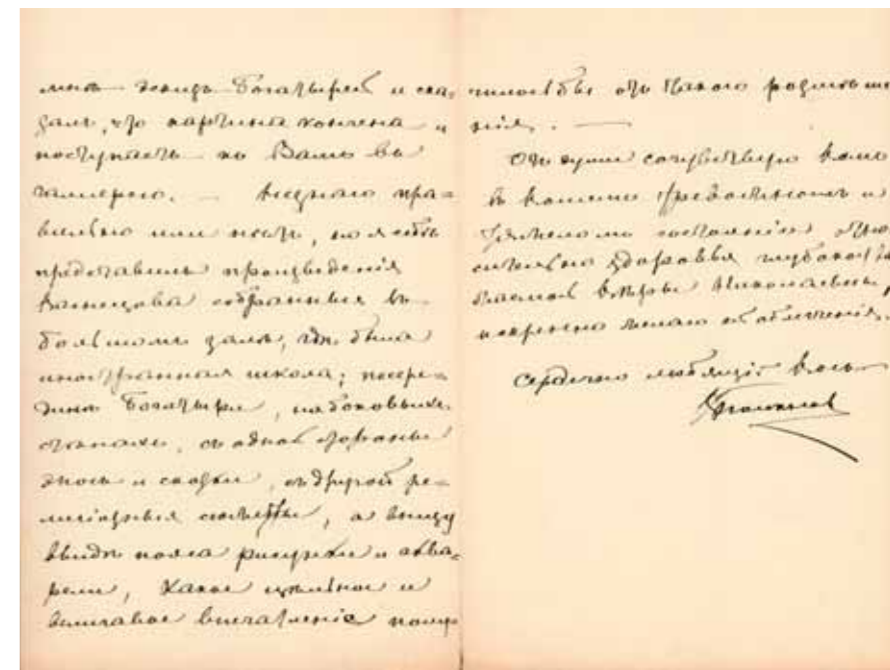 мнѣ эскизъ Богатырей и ска=
залъ, что картина кончена и
поступаетъ къ Вамъ въ
галлерею. — Не знаю пра=
вильно или нетъ, но я себѣ
представилъ произведенія
Васнецова собранныя въ
большомъ залѣ, гдѣ была
иностранная школа; посре=
динѣ Богатыри, на боковыхъ
стѣнахъ, съ одной стороны
эпосъ и сказки, съ другой ре=
лигіозные сюжеты, а внизу
ввидѣ пояса рисунки и аква=
рели, Какое цѣльное и
величавое впечатленіе полу=
чилось бы отъ такого размѣще
нія. —
Отъ души сочувствую Вамъ
въ Вашемъ тревожномъ и
тяжеломъ состояніи отно
сительно здоровья глубокоува
жаемой Вѣры Николаевны,
искренно желаю ей облегченія.
Сердечно любящій Васъ